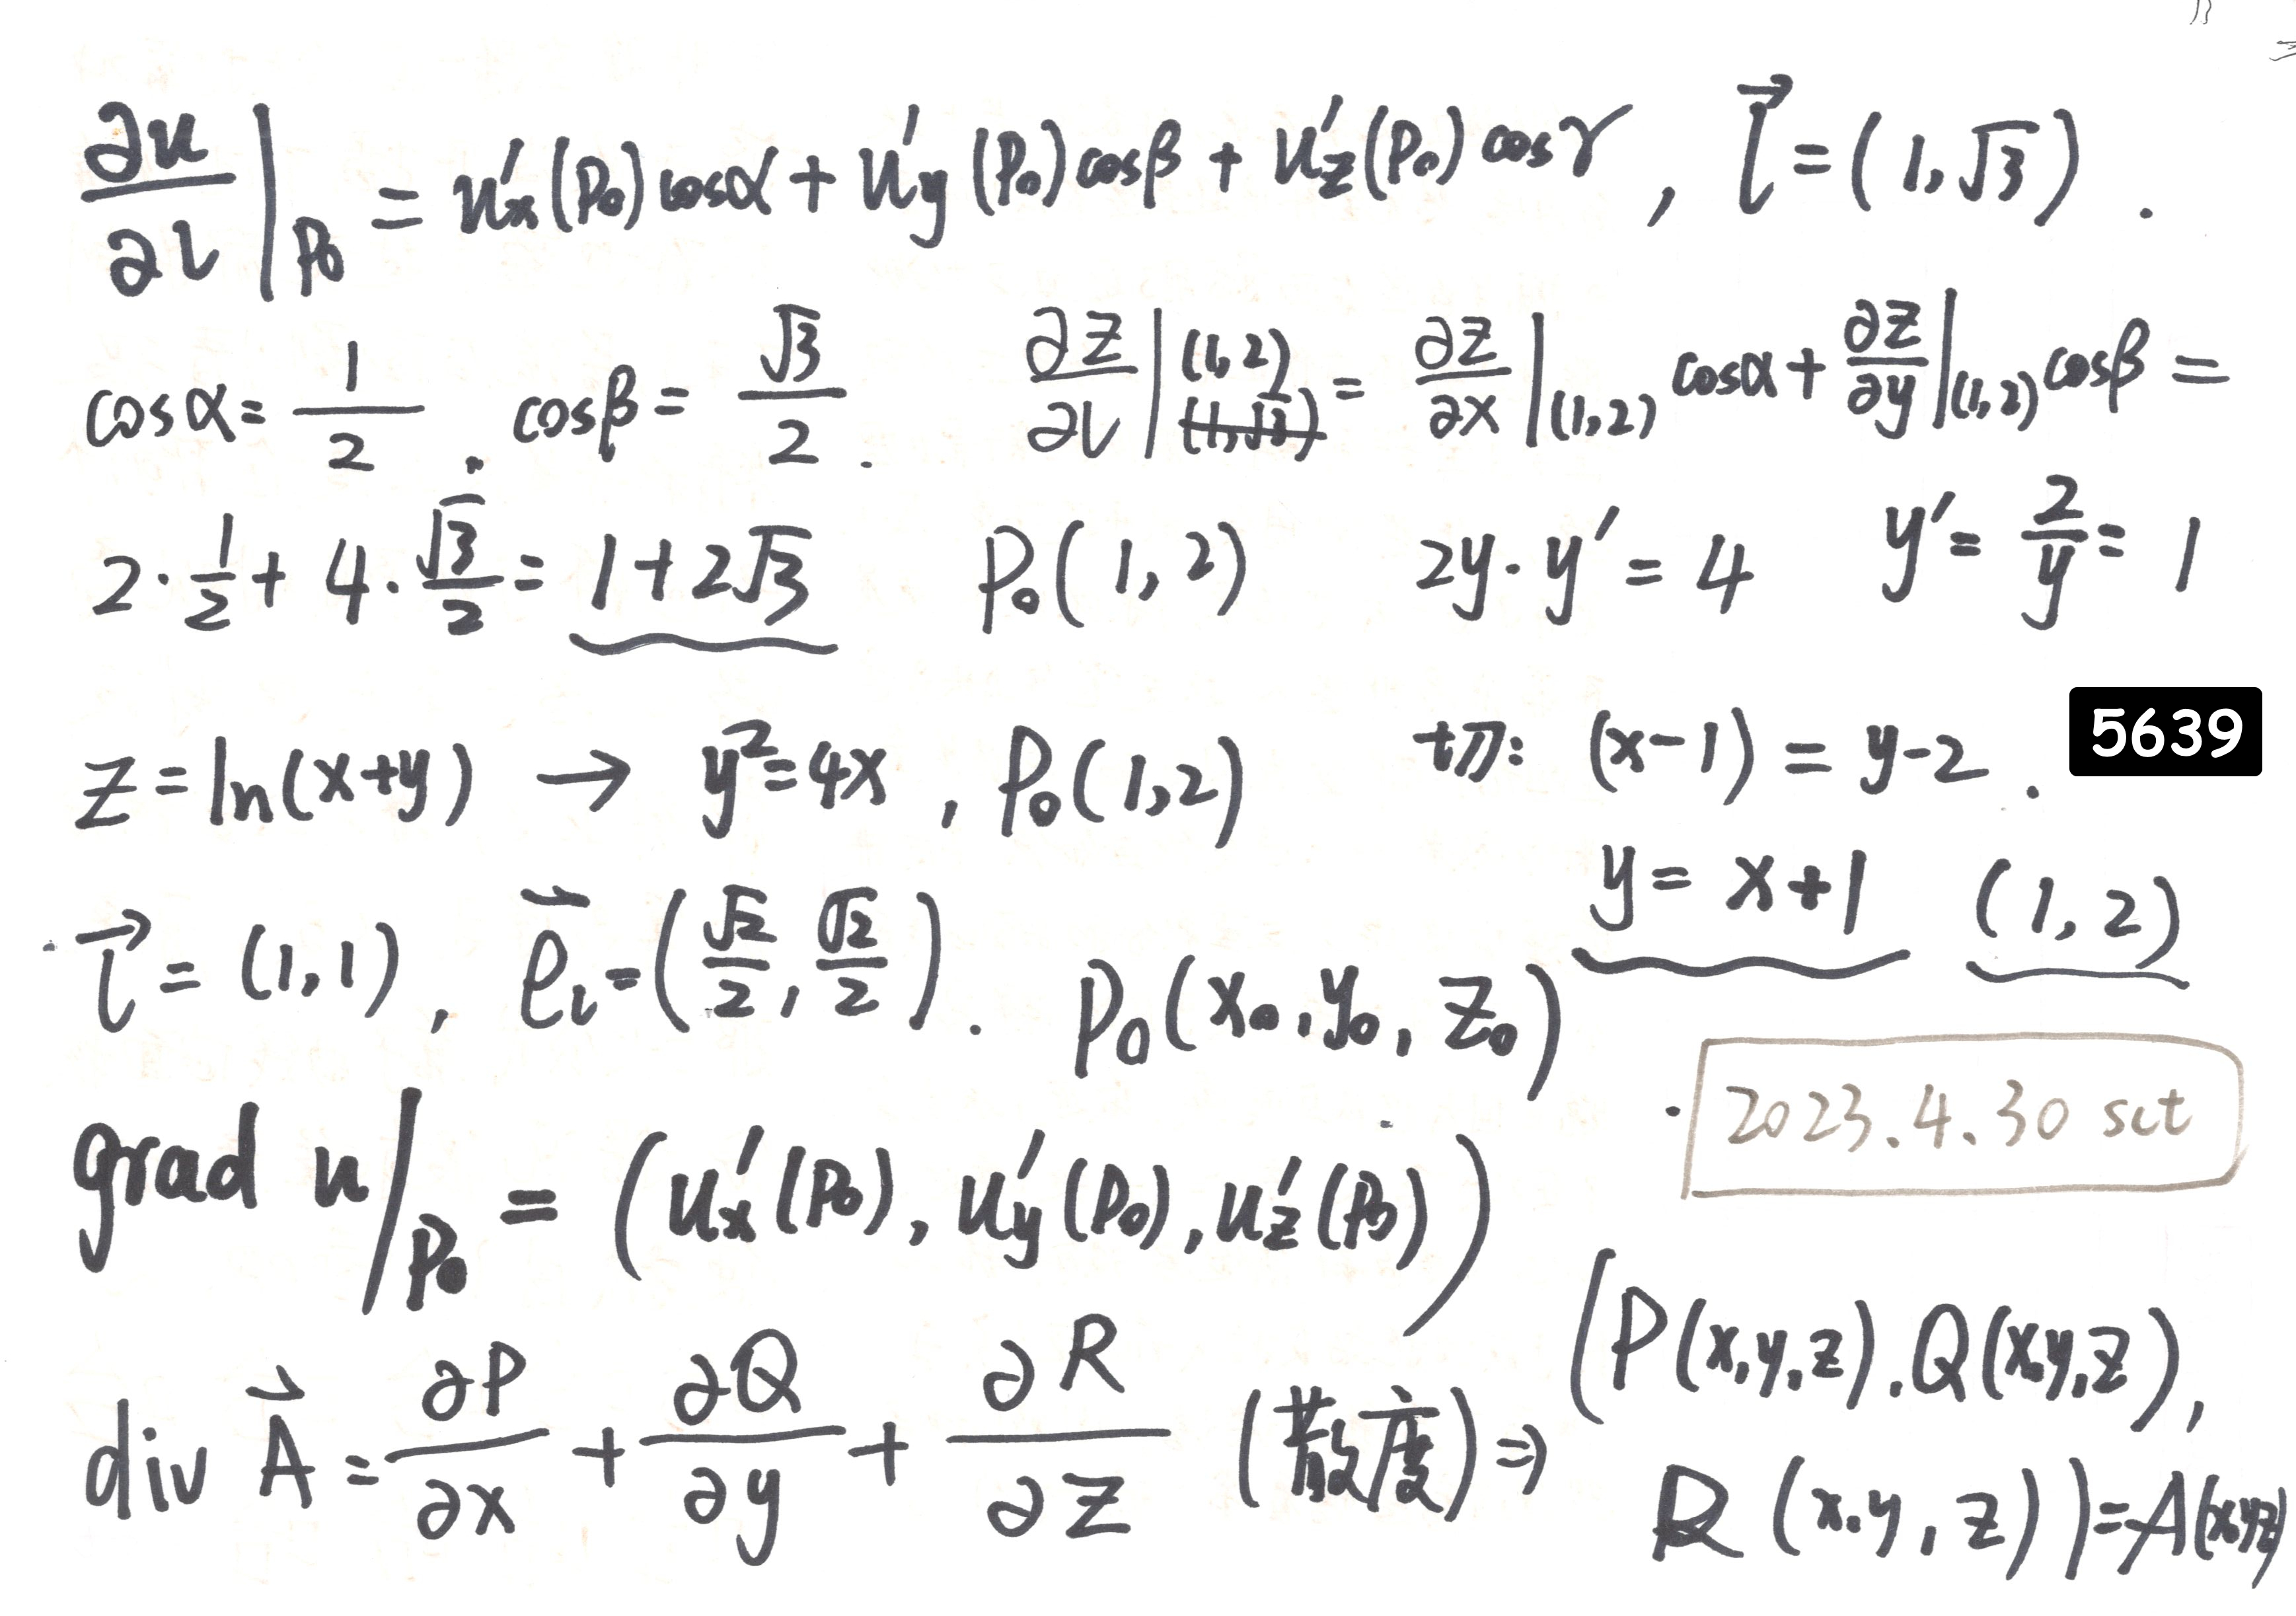 ∂u/∂l |P₀ = u'x(P₀)cosα + u'y(P₀)cosβ + u'z(P₀)cosγ , l⃗ = (1,√3) .
cosα = 1/2 . cosβ = √3/2 . ∂z/∂l |(1,2) = ∂z/∂x |(1,2) cosα + ∂z/∂y |(1,2) cosβ =
2·1/2 + 4·√3/2 = 1+2√3 P₀(1,2) 2y·y' = 4 y' = 2/y = 1
z = ln(x+y) → y²=4x , P₀(1,2) 切: (x-1) = y-2 .
5639
y = x+1 (1,2)
l⃗ = (1,1) , e⃗l = (√2/2, √2/2) . P₀(x₀,y₀,z₀)
2023.4.30 sct
grad u|P₀ = (u'x(P₀), u'y(P₀), u'z(P₀))
div A⃗ = ∂P/∂x + ∂Q/∂y + ∂R/∂z (散度) ⇒ (P(x,y,z).Q(x,y,z),
R(x.y,z))=A(x,y,z)